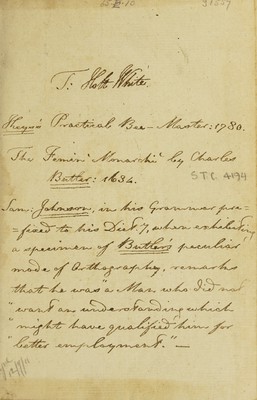 T: Holt White.
Keys's Practical Bee-Master: 1780.
The Femin' Monarchi' by Charles
Butler: 1634.
STC. 4194
Sam: Johnson, in his Grammar pre=
=fixed to his Dict:y, when exhibiting
a specimen of Butler's peculiar
mode of Orthography, remarks
that he was "a Man who did not
"want an understanding which
"might have qualified him for
"better employment." —